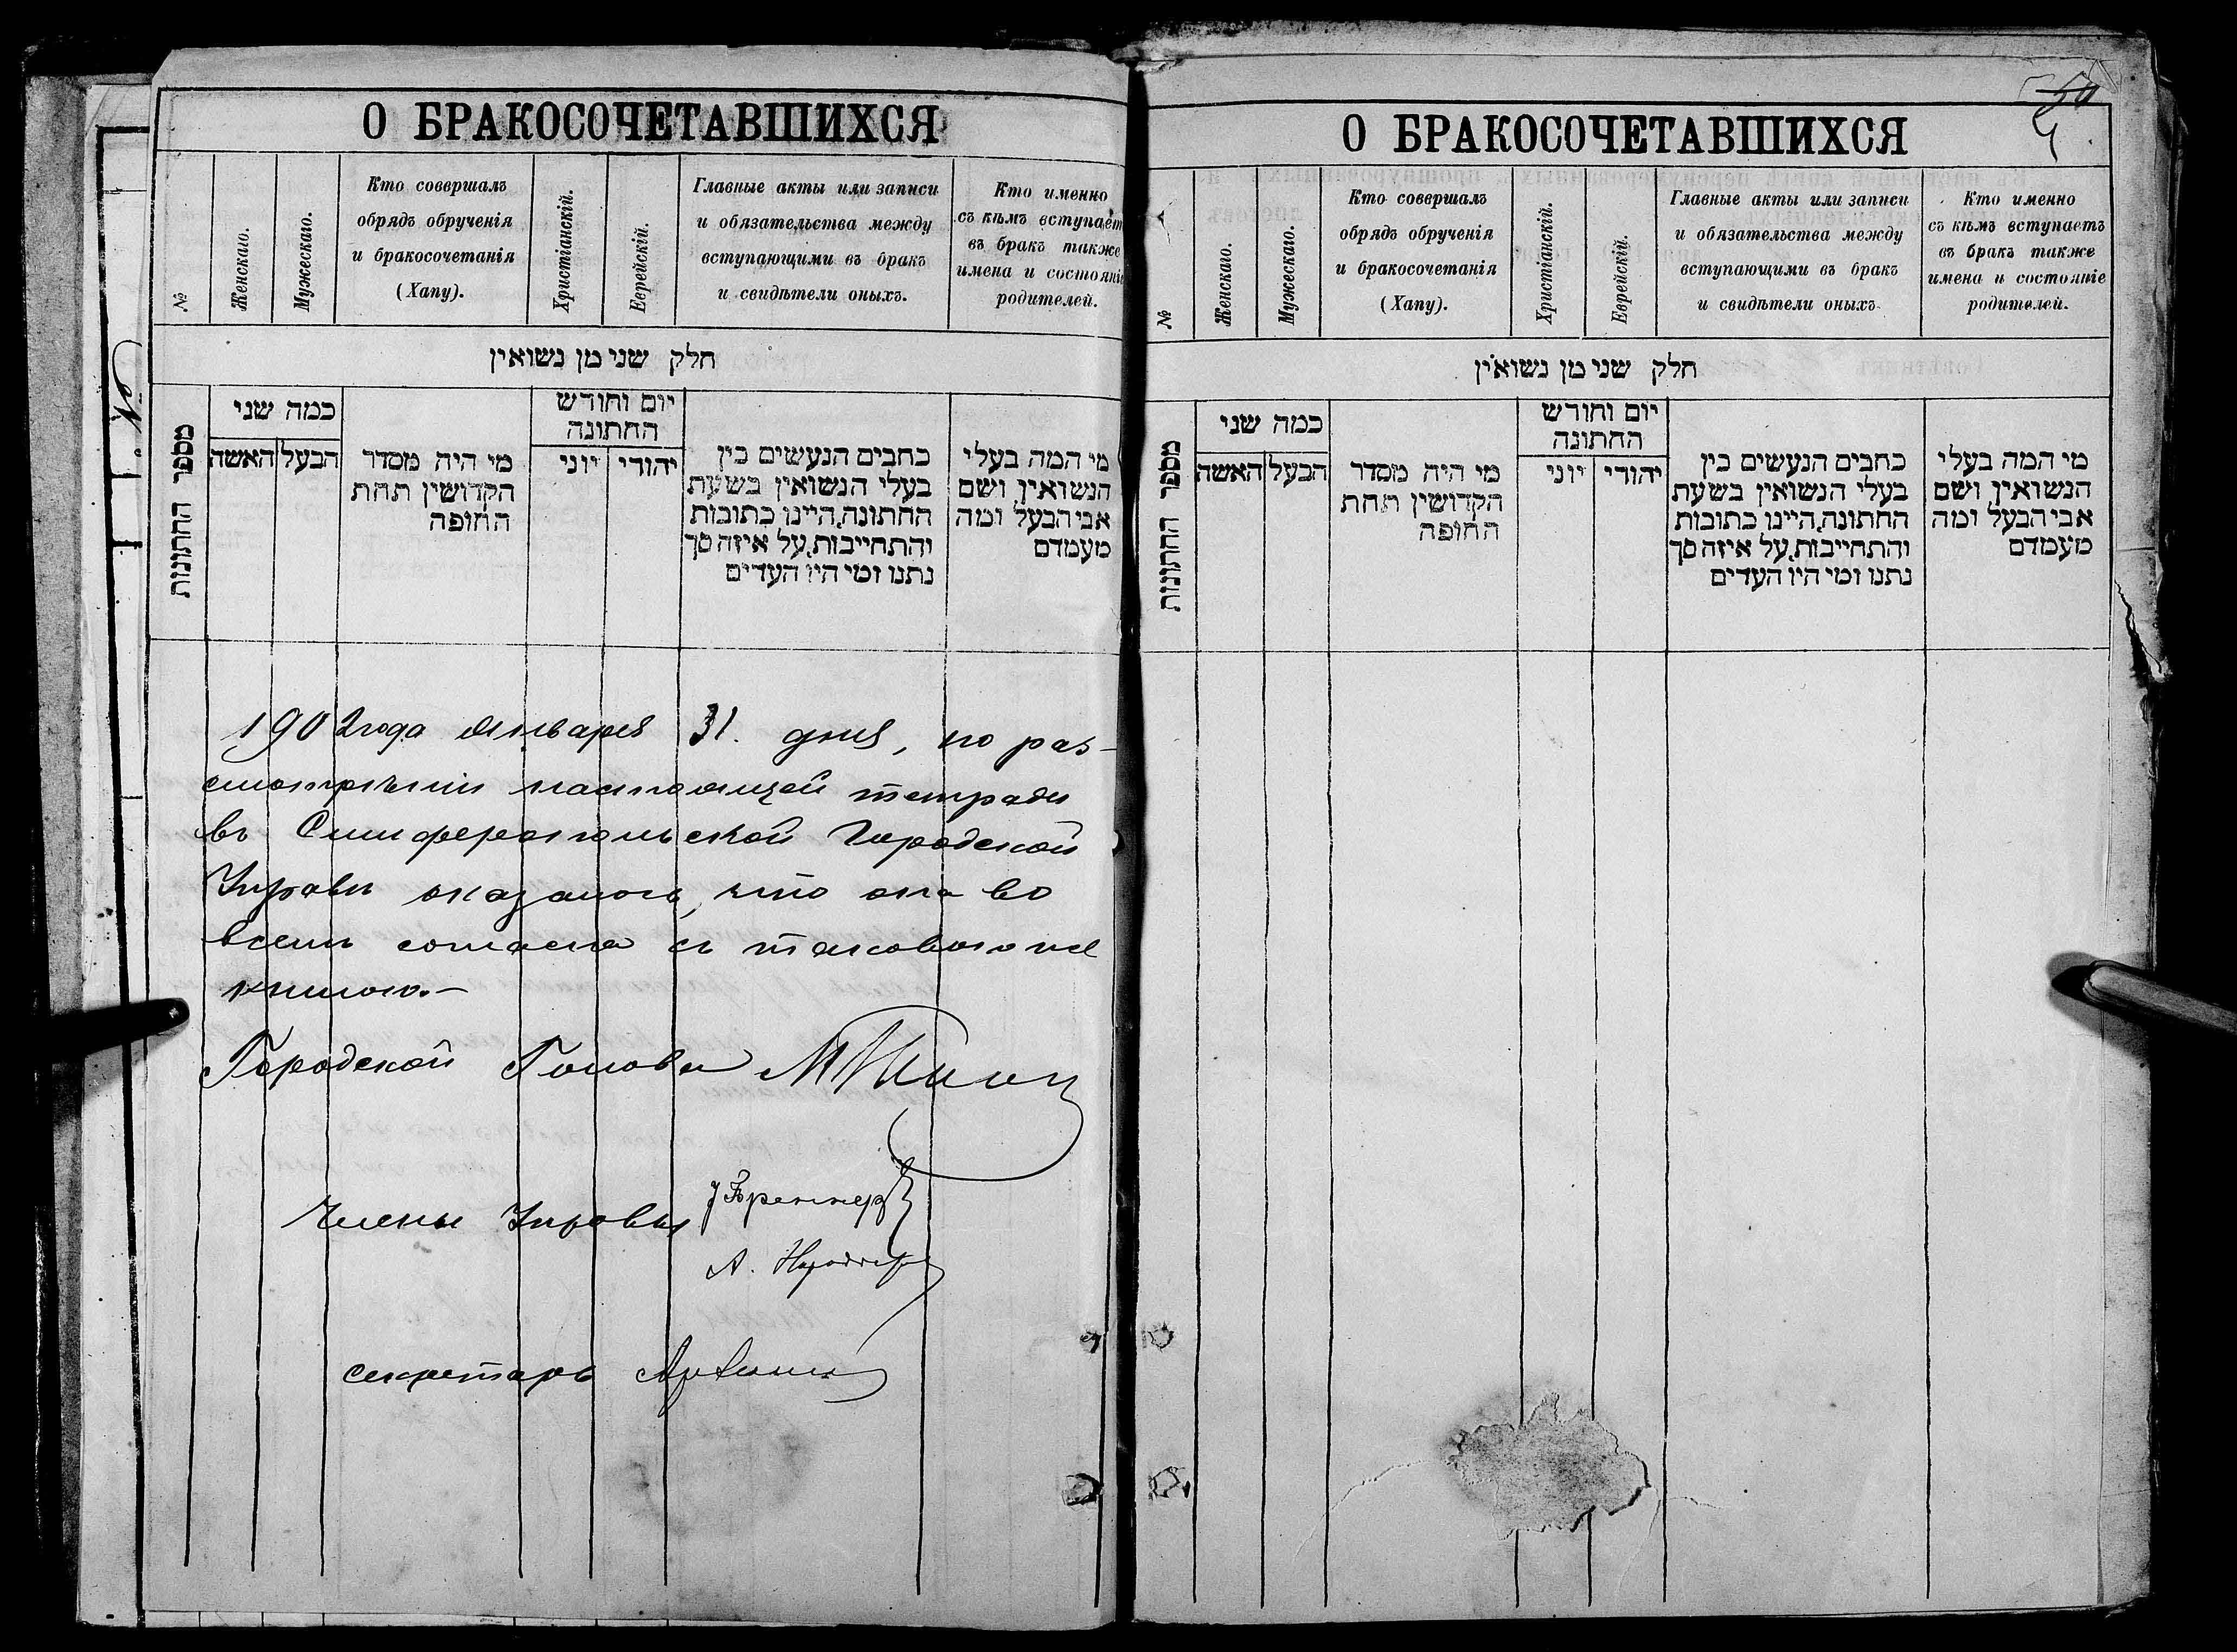 О БРАКОСОЧЕТАВШИХСЯ
№
Женскаго.
Мужескаго.
Кто совершалъ
обрядъ обрученія
и бракосочетанія
(Хапу).
Христіанскій.
Еврейскій.
Главные акты или записи
и обязательства между
вступающими въ бракъ
и свидѣтели оныхъ.
Кто именно
съ кѣмъ вступаетъ
въ бракъ также
имена и состояніе
родителей.
חלק שני מן נשואין
מספר החתונות
כמה שני
האשה
הבעל
מי היה מסדר
הקדושין תחת
החופה
יום וחודש
החתונה
יוני
יהודי
כתבים הנעשים בין
בעלי הנשואין בשעת
החתונה, היינו כתובות
והתחייבות, על איזה סך
נתנו ומי היו העדים
מי המה בעלי
הנשואין, ושם
אבי הבעל ומה
מעמדם
1902 года Января 31. дня, по раз-
смотрѣніи настоящей тетради
въ Симферопольской Городской
Управѣ оказалось, что она во
всемъ согласна съ таковою же
книгою.—
Городской Голова
Члены Управы
Бреннер
А.
Секретарь
О БРАКОСОЧЕТАВШИХСЯ
50
№
Женскаго.
Мужескаго.
Кто совершалъ
обрядъ обрученія
и бракосочетанія
(Хапу).
Христіанскій.
Еврейскій.
Главные акты или записи
и обязательства между
вступающими въ бракъ
и свидѣтели оныхъ.
Кто именно
съ кѣмъ вступаетъ
въ бракъ также
имена и состояніе
родителей.
חלק שני מן נשואין
מספר החתונות
כמה שני
האשה
הבעל
מי היה מסדר
הקדושין תחת
החופה
יום וחודש
החתונה
יוני
יהודי
כתבים הנעשים בין
בעלי הנשואין בשעת
החתונה, היינו כתובות
והתחייבות, על איזה סך
נתנו ומי היו העדים
מי המה בעלי
הנשואין, ושם
אבי הבעל ומה
מעמדם